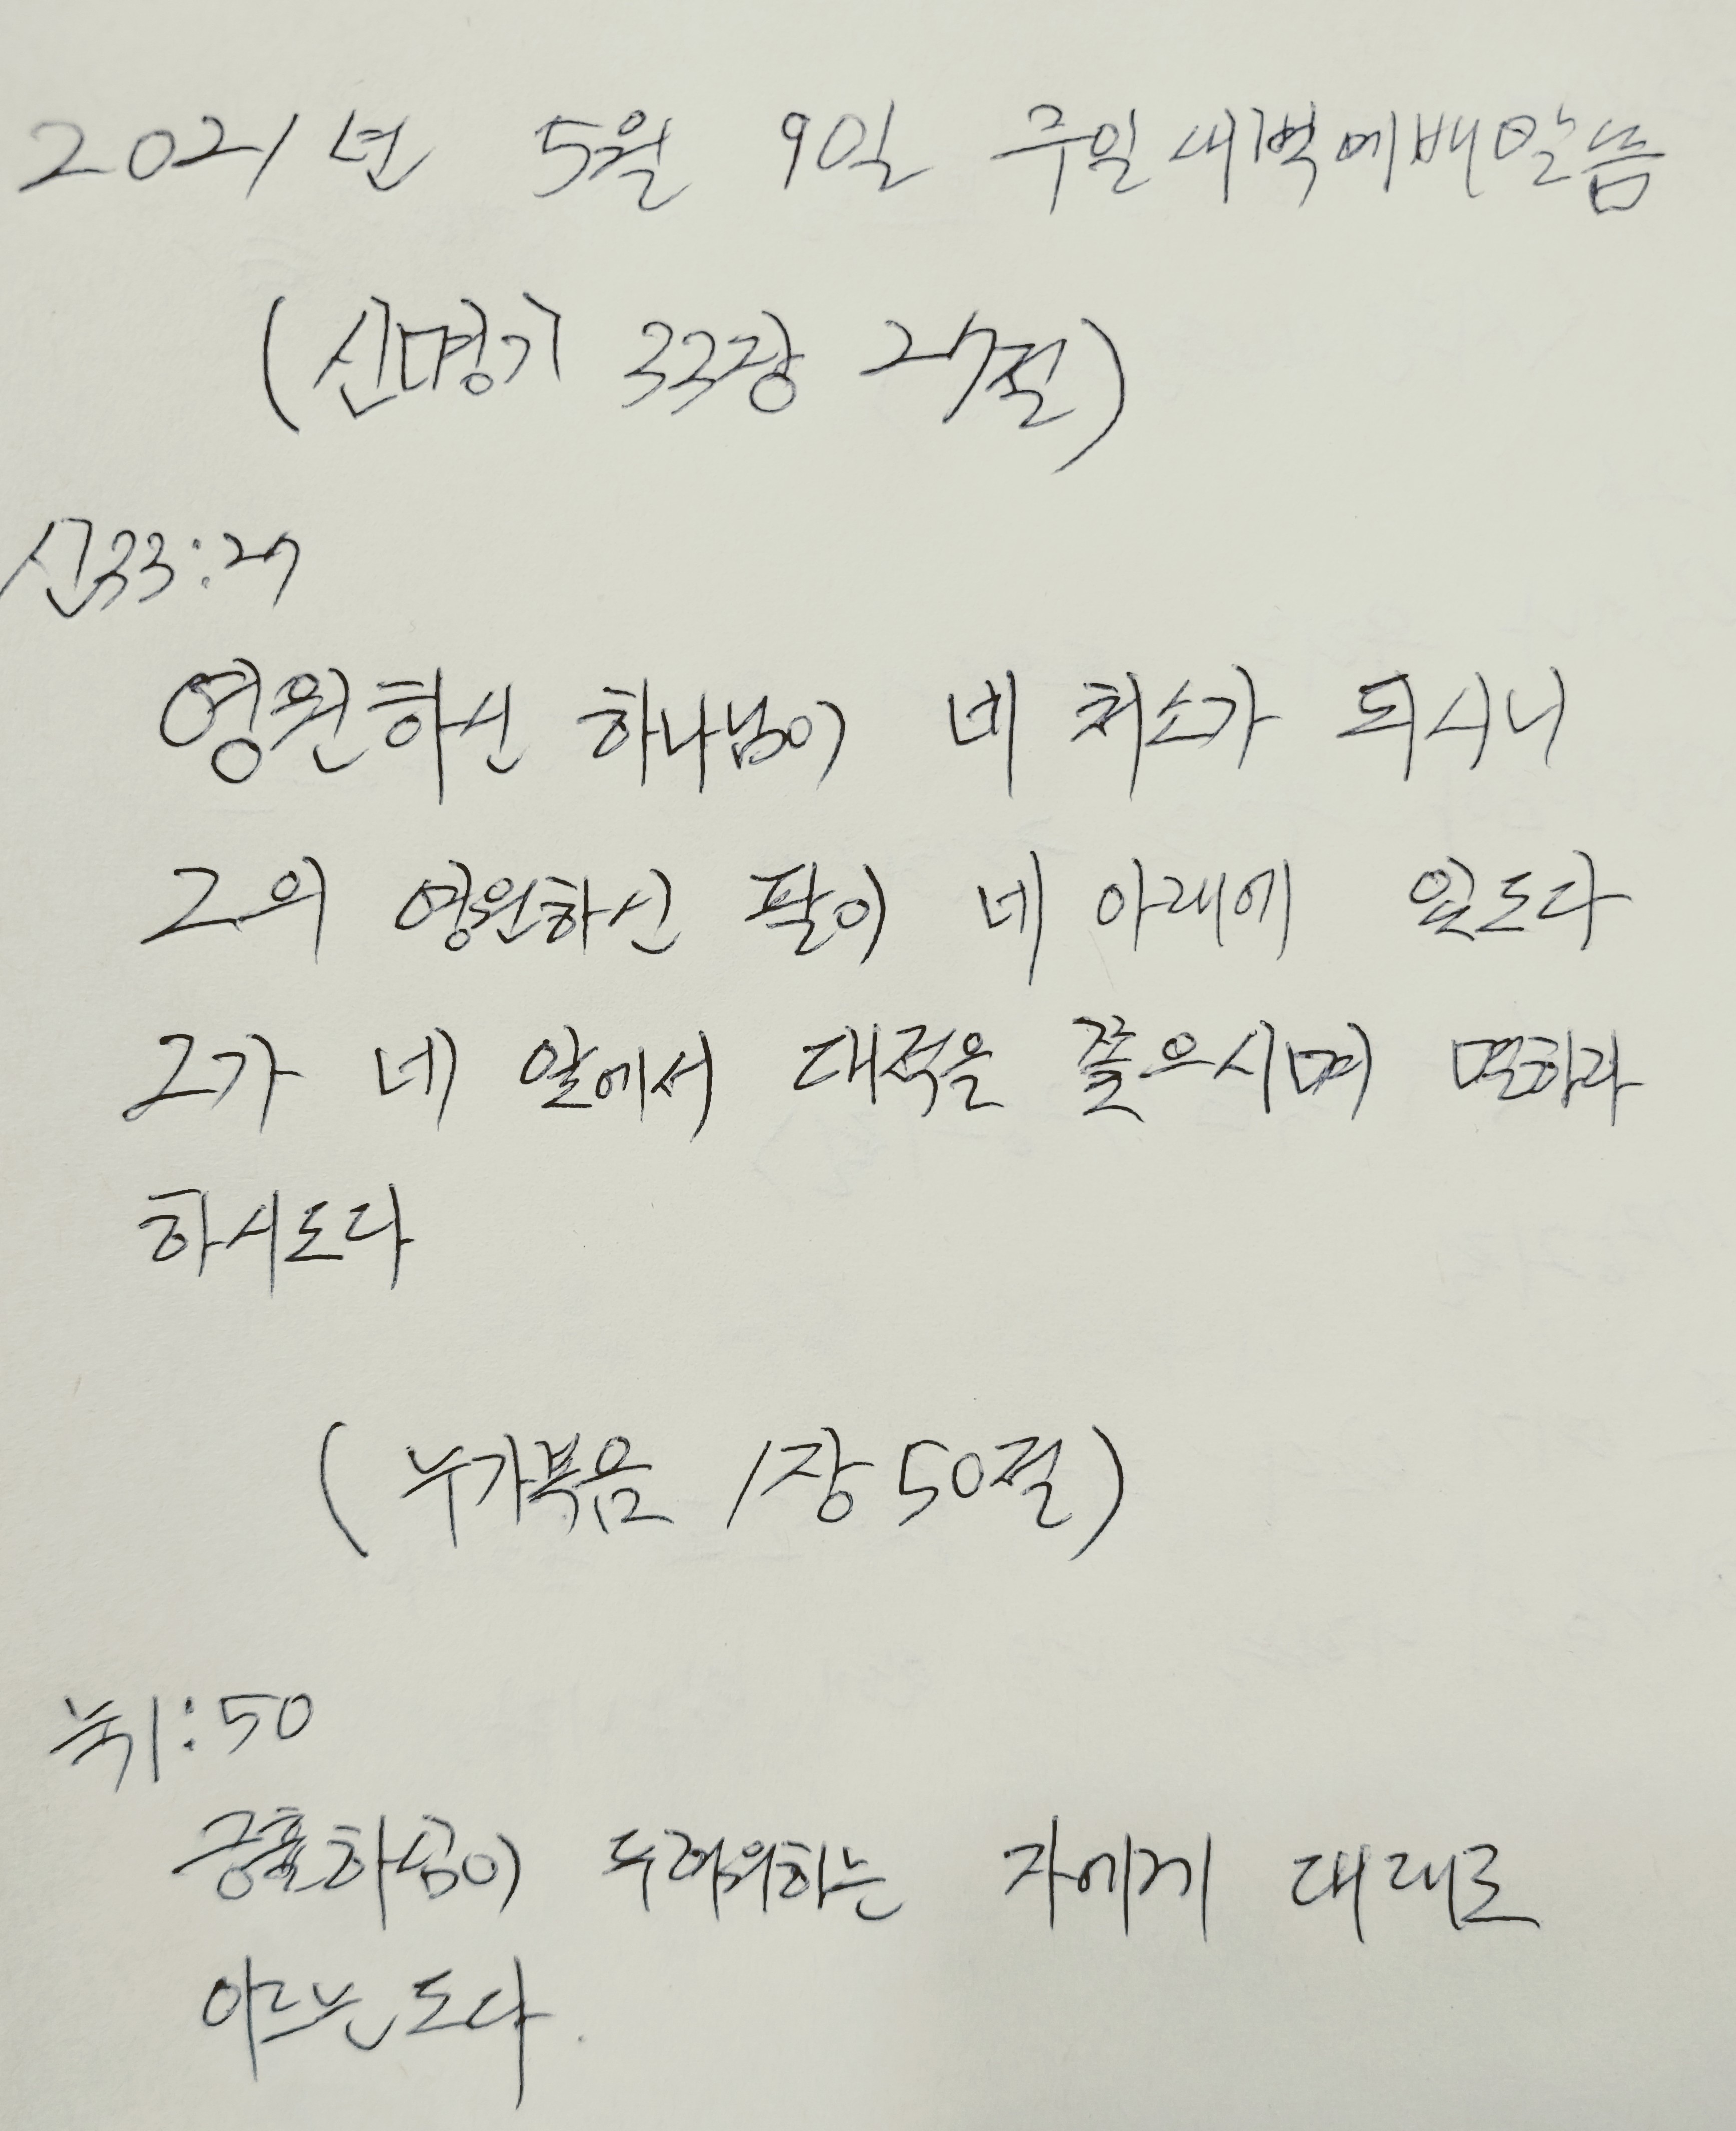 2021년 5월 9일 주일새벽예배말씀
(신명기 33장 27절)
신33:27
영원하신 하나님이 네 처소가 되시니
그의 영원하신 팔이 네 아래에 있도다
그가 네 앞에서 대적을 쫓으시며 멸하라
하시도다
(누가복음 1장 50절)
눅1:50
긍휼하심이 두려워하는 자에게 대대로
이르는도다.